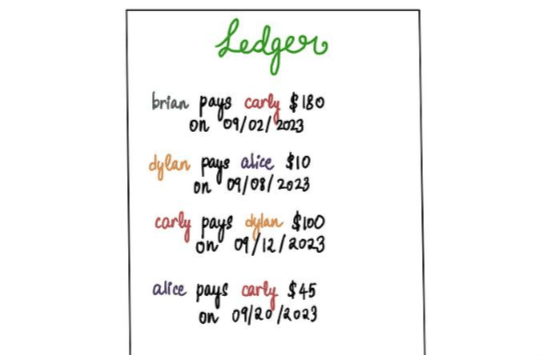 Ledger
brian pays carly $180
on 09/02/2023
dylan pays alice $10
on 09/08/2023
carly pays dylan $100
on 09/12/2023
alice pays carly $45
on 09/20/2023